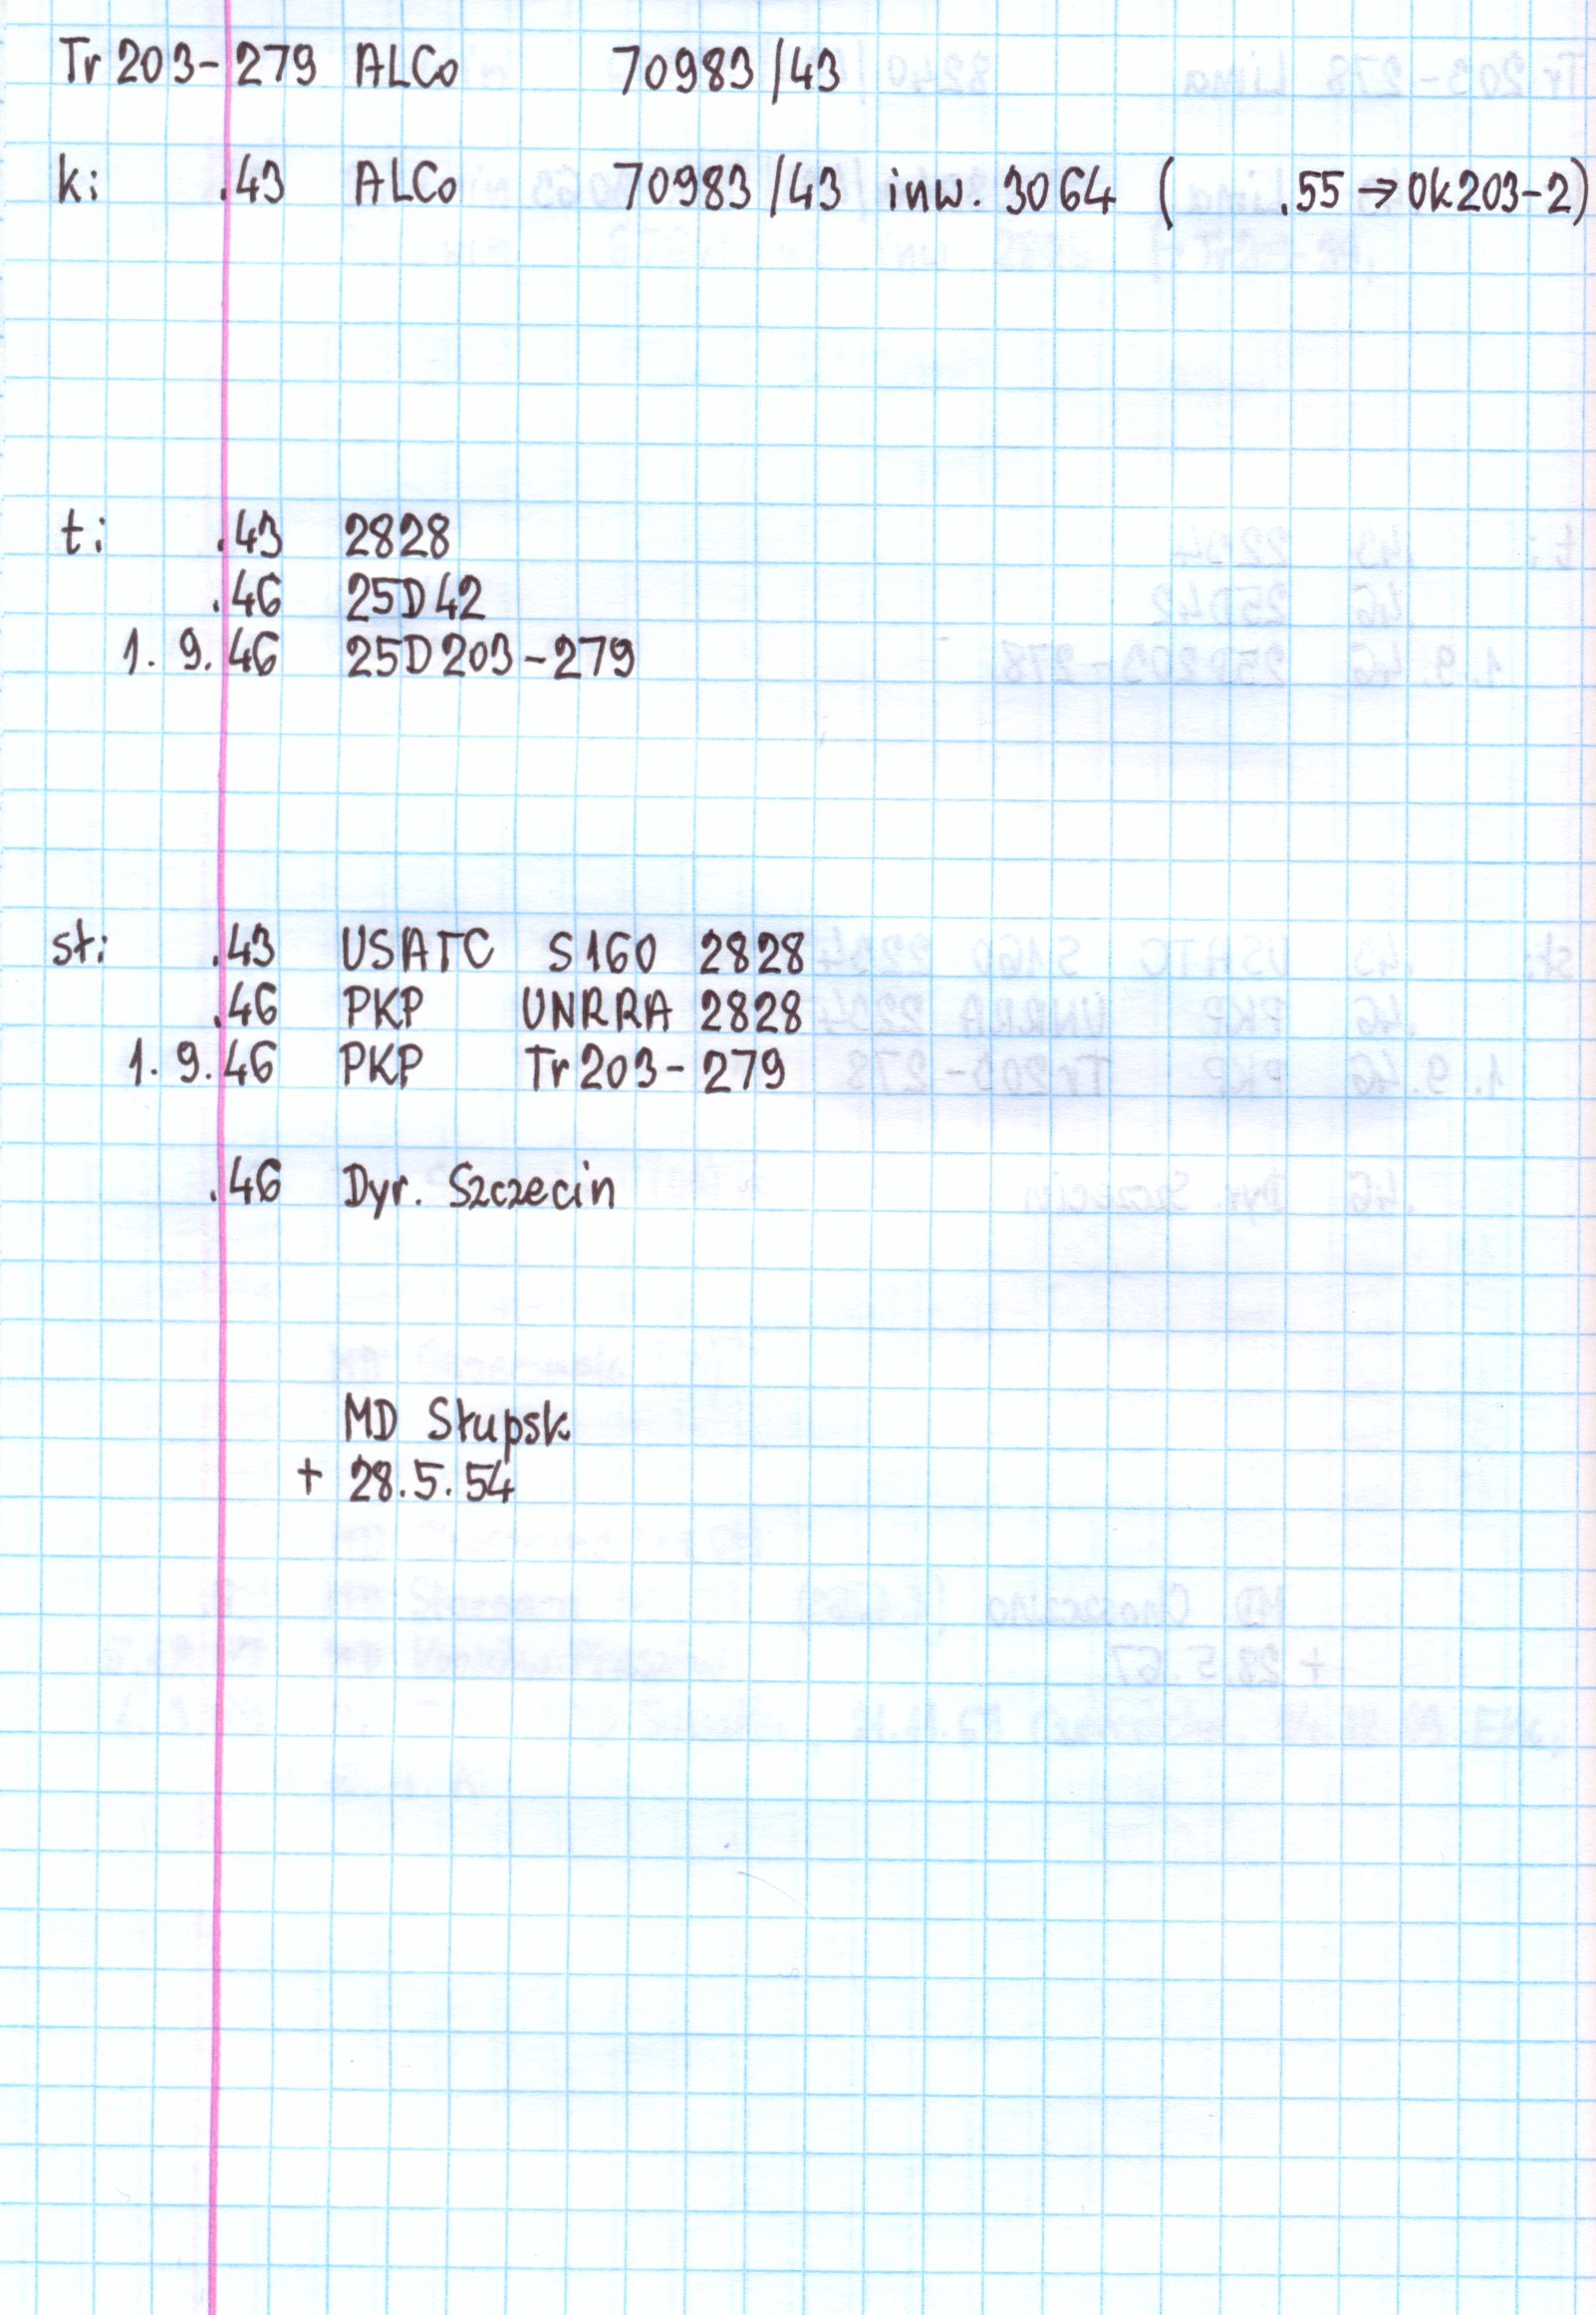 Tr 203-279 ALCo 70983/43
k: .43 ALCo 70983/43 inw. 3064 ( .55 → Ok203-2)
t: .43 2828
.46 25D42
1. 9. 46 25D203-279
st: .43 USATC S160 2828
.46 PKP UNRRA 2828
1. 9. 46 PKP Tr203-279
.46 Dyr. Szczecin
MD Słupsk
+ 28.5.54